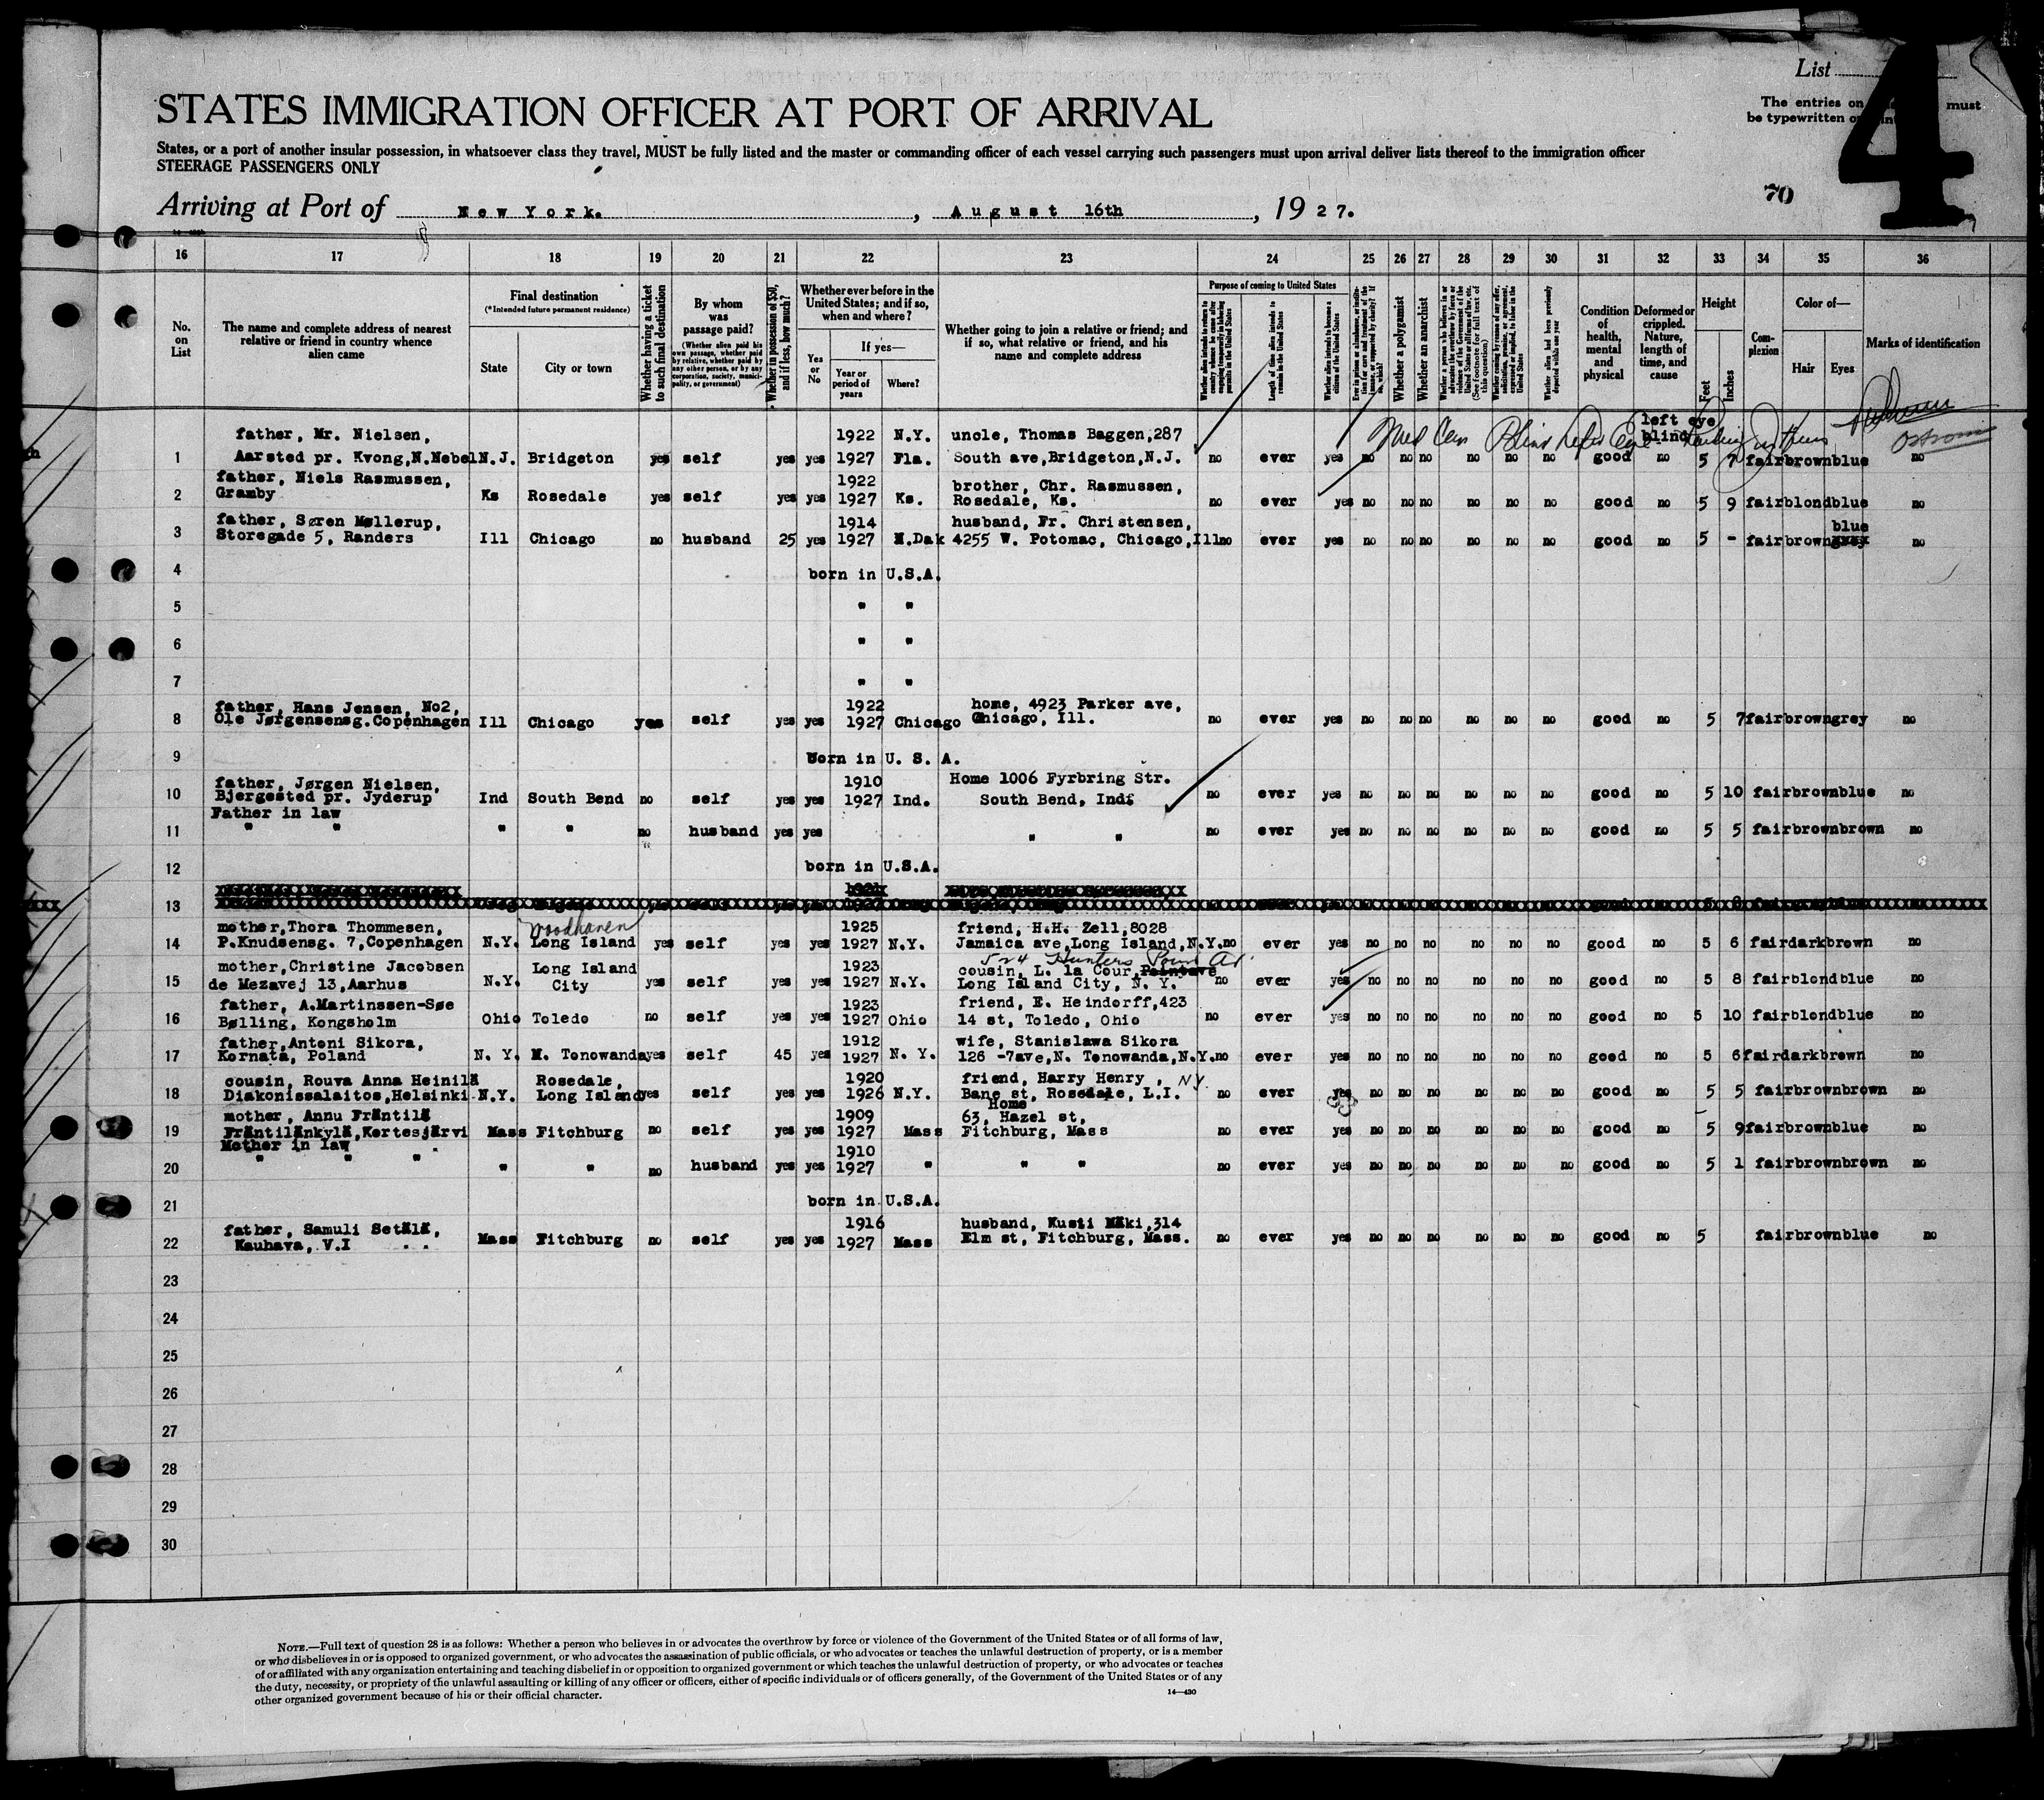 List
4
The entries on must
be typewritten or
STATES IMMIGRATION OFFICER AT PORT OF ARRIVAL
States, or a port of another insular possession, in whatsoever class they travel, MUST be fully listed and the master or commanding officer of each vessel carrying such passengers must upon arrival deliver lists thereof to the immigration officer
STEERAGE PASSENGERS ONLY
70
Arriving at Port of New York. , August 16th , 1927.
16 17 18 19 20 21 22 23 24 25 26 27 28 29 30 31 32 33 34 35 36
No. on List
The name and complete address of nearest relative or friend in country whence alien came
Final destination
(*Intended future permanent residence)
State
City or town
Whether having a ticket to such final destination
By whom was passage paid?
(Whether alien paid his own passage, whether paid by relative, whether paid by any other person, or by any corporation, society, municipality, or government)
Whether in possession of $50, and if less, how much?
Whether ever before in the United States; and if so, when and where?
Yes or No
If yes—
Year or period of years
Where?
Whether going to join a relative or friend; and if so, what relative or friend, and his name and complete address
Purpose of coming to United States
Whether alien intends to return to country whence he came after engaging temporarily in laboring pursuits in the United States
Length of time alien intends to remain in the United States
Whether alien intends to become a citizen of the United States
Ever in prison or almshouse, or institution for care and treatment of the insane, or supported by charity? If so, which?
Whether a polygamist
Whether an anarchist
Whether a person who believes in or advocates the overthrow by force or violence of the Government of the United States or all forms of law, etc. (See footnote for full text of this question)
Whether coming by reason of any offer, solicitation, promise, or agreement, expressed or implied, to labor in the United States
Whether alien had been previously deported within one year
Condition of health, mental and physical
Deformed or crippled. Nature, length of time, and cause
Height
Feet
Inches
Complexion
Color of—
Hair
Eyes
Marks of identification
left eye
father, Mr. Nielsen, 1922 N.Y. uncle, Thomas Baggen,287 Med Cer Blind left eye blind
1 Aarsted pr. Kvong,N.Nebel N.J. Bridgeton yes self yes yes 1927 Fla. South ave,Bridgeton,N.J. no ever yes no no no no no no good no 5 7 fair brown blue no
father, Niels Rasmussen, 1922 brother, Chr. Rasmussen,
2 Gramby Ks Rosedale yes self yes yes 1927 Ks. Rosedale, Ks. no ever yes no no no no no no good no 5 9 fair blond blue no
father, Søren Møllerup, 1914 husband, Fr. Christensen, blue
3 Storegade 5, Randers Ill Chicago no husband 25 yes 1927 N.Dak 4255 W. Potomac, Chicago,Ill no ever yes no no no no no no good no 5 - fair brown no
4 born in U.S.A.
5 " "
6 " "
7 " "
father, Hans Jensen, No2, 1922 home, 4923 Parker ave,
8 Ole Jørgensensg.Copenhagen Ill Chicago yes self yes yes 1927 Chicago Chicago, Ill. no ever yes no no no no no no good no 5 7 fair brown grey no
9 Born in U. S. A.
father, Jørgen Nielsen, 1910 Home 1006 Fyrbring Str.
10 Bjergested pr. Jyderup Ind South Bend no self yes yes 1927 Ind. South Bend, Ind. no ever yes no no no no no no good no 5 10 fair brown blue no
Father in law
11 " " " " no husband yes yes " " no ever yes no no no no no no good no 5 5 fair brown brown no
12 born in U.S.A.
13
mother,Thora Thommesen, Woodhaven 1925 friend, H.H. Zell,8028
14 P.Knudsensg. 7,Copenhagen N.Y. Long Island yes self yes yes 1927 N.Y. Jamaica ave,Long Island,N.Y. no ever yes no no no no no no good no 5 6 fair dark brown no
524 Hunters Point Av.
mother,Christine Jacobsen Long Island 1923 cousin, L. la Cour,
15 de Mezavej 13,Aarhus N.Y. City yes self yes yes 1927 N.Y. Long Island City, N. Y. no ever yes no no no no no no good no 5 8 fair blond blue no
father, A.Martinssen-Søe 1923 friend, E. Heindorff,423
16 Bølling, Kongsholm Ohio Toledo no self yes yes 1927 Ohio 14 st, Toledo, Ohio no ever yes no no no no no no good no 5 10 fair blond blue no
father,Antoni Sikora, 1912 wife, Stanislawa Sikora
17 Kornata, Poland N. Y. N. Tonowanda yes self 45 yes 1927 N. Y. 126 -7ave,N. Tonowanda,N.Y. no ever yes no no no no no no good no 5 6 fair dark brown no
cousin, Rouva Anna Heinilä Rosedale, 1920 friend, Harry Henry , NY.
18 Diakonissalaitos,Helsinki N.Y. Long Island yes self yes yes 1926 N.Y. Bane st, Rosedale, L.I. no ever yes no no no no no no good no 5 5 fair brown brown no
Home
mother, Annu Fräntilä 1909 63, Hazel st,
19 Fräntilänkylä,Kortesjärvi Mass Fitchburg no self yes yes 1927 Mass Fitchburg, Mass no ever yes no no no no no no good no 5 9 fair brown blue no
Mother in law 1910
20 " " " " " no husband yes yes 1927 " " " no ever yes no no no no no no good no 5 1 fair brown brown no
21 born in U.S.A.
father, Samuli Setälä, 1916 husband, Kusti Mäki,314
22 Kauhava, V.I Mass Fitchburg no self yes yes 1927 Mass Elm st, Fitchburg, Mass. no ever yes no no no no no no good no 5 fair brown blue no
23
24
25
26
27
28
29
30
NOTE.—Full text of question 28 is as follows: Whether a person who believes in or advocates the overthrow by force or violence of the Government of the United States or of all forms of law,
or who disbelieves in or is opposed to organized government, or who advocates the assassination of public officials, or who advocates or teaches the unlawful destruction of property, or is a member
of or affiliated with any organization entertaining and teaching disbelief in or opposition to organized government or which teaches the unlawful destruction of property, or who advocates or teaches
the duty, necessity, or propriety of the unlawful assaulting or killing of any officer or officers, either of specific individuals or of officers generally, of the Government of the United States or of any
other organized government because of his or their official character.
14—430